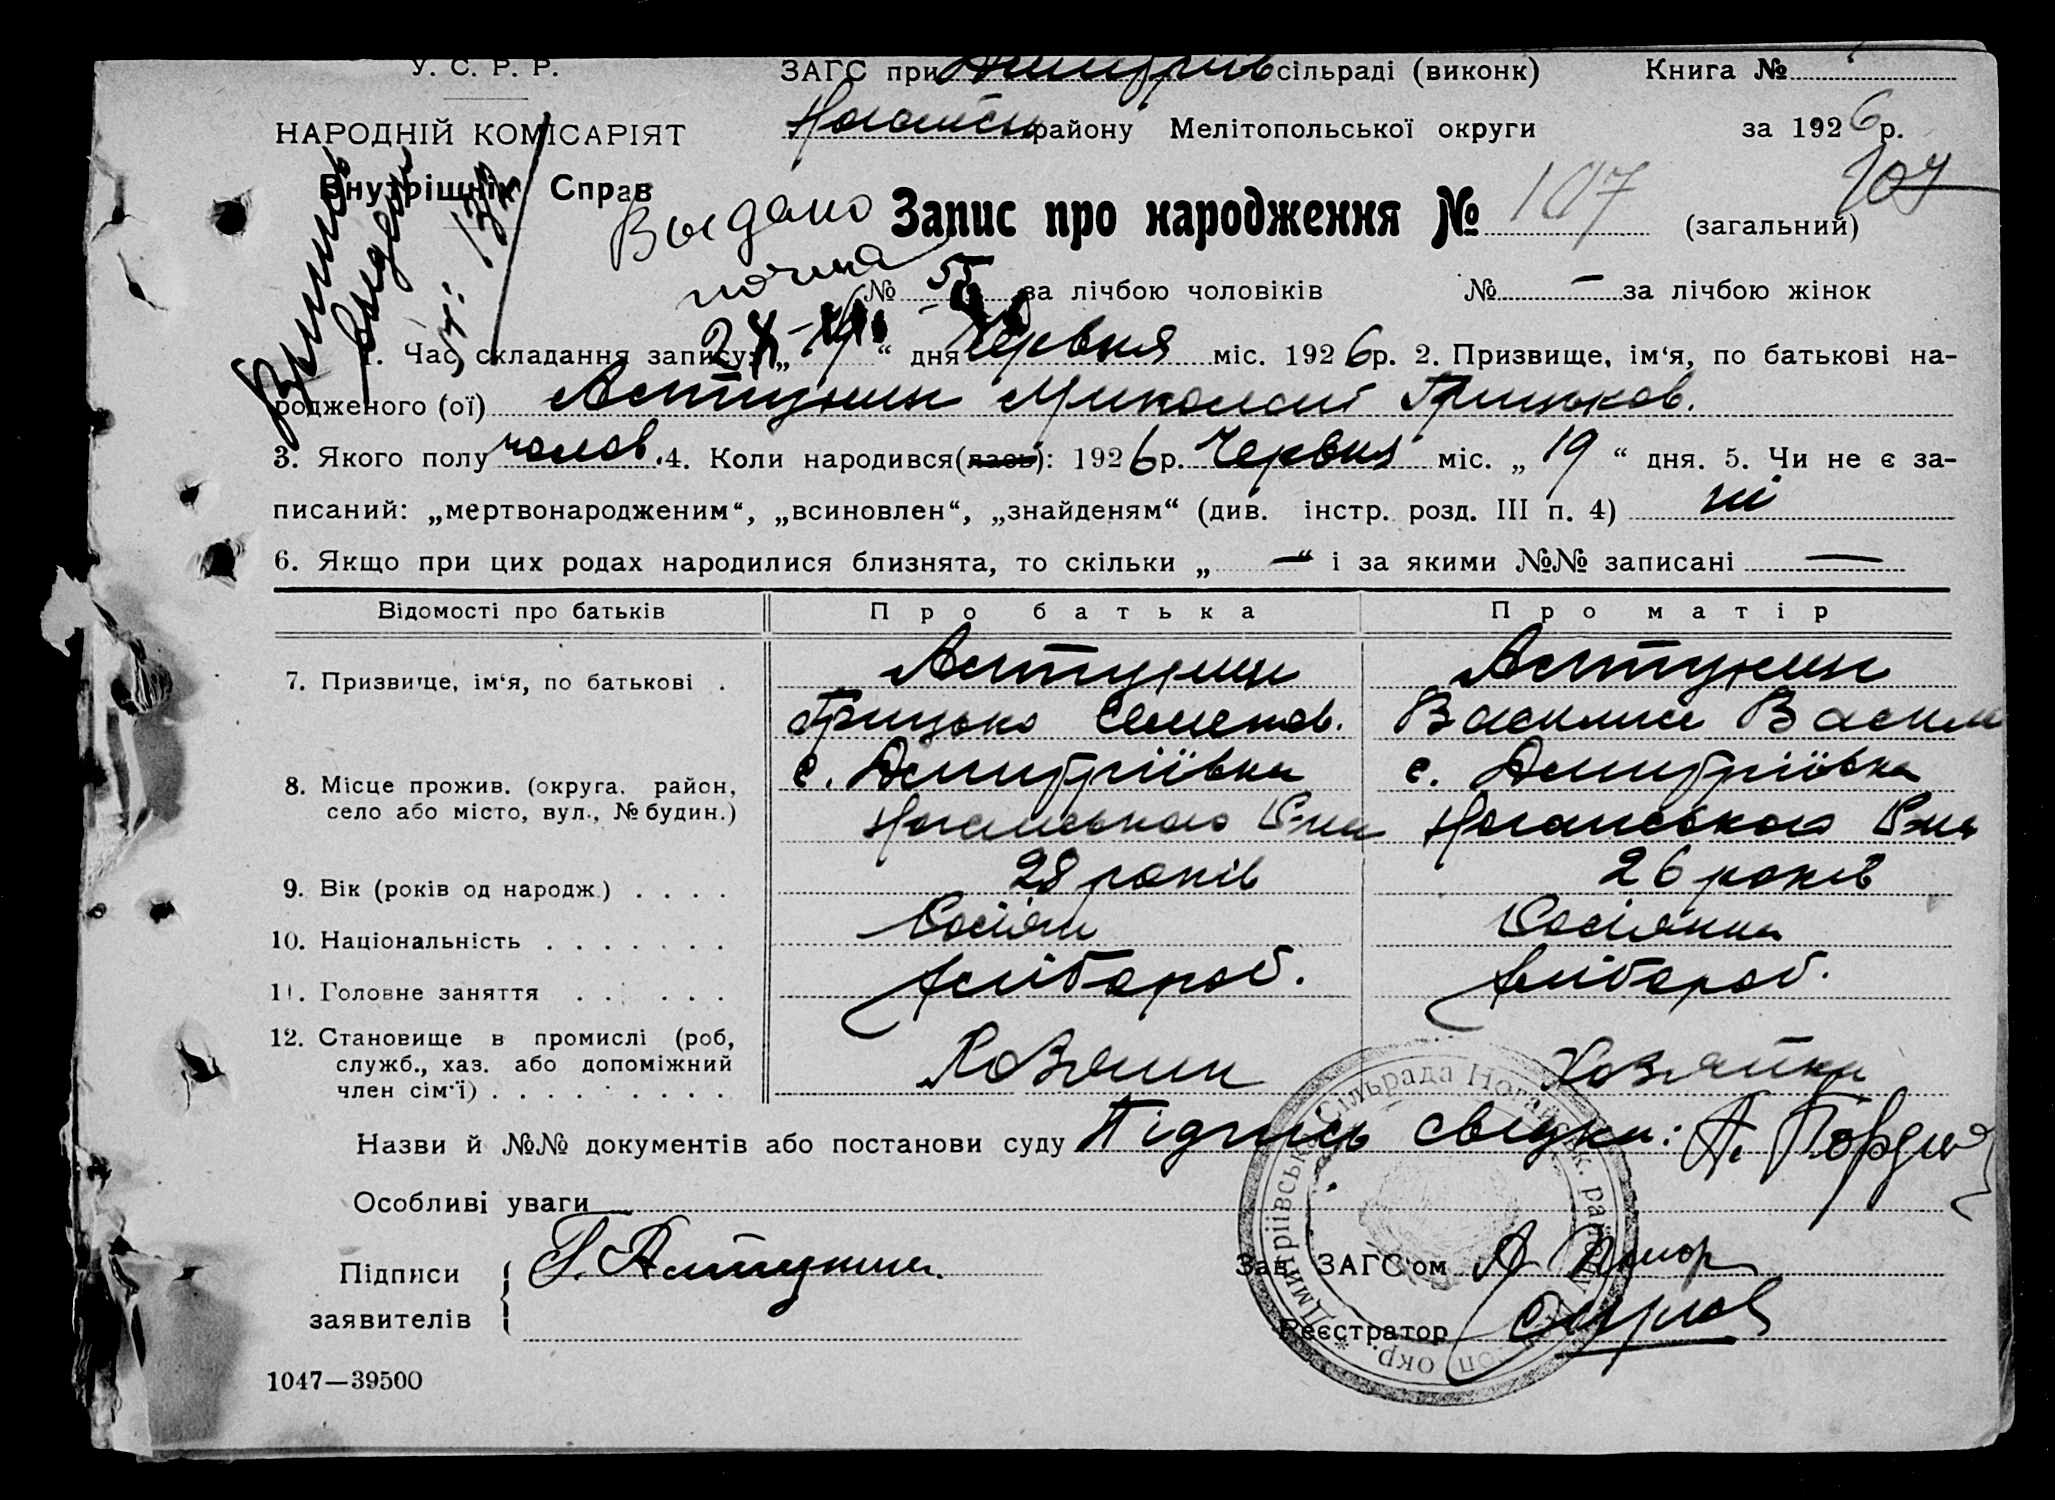 У. С. Р. Р.
ЗАГС при Дмитріїв сільраді (виконк) Книга №
НАРОДНІЙ КОМІСАРІЯТ
Внутрішніх Справ
Ногайськ району Мелітопольської округи за 1926 р.
Запис про народження № 107 (загальний) 107
Выдано
№ 55 за лічбою чоловіків № – за лічбою жінок
1. Час складання запису: „ “ дня Червня міс. 1926 р. 2. Призвище, ім‘я, по батькові на-
родженого (ої) Миколай Грицьков.
3. Якого полу чолов. 4. Коли народився(лась): 1926 р. Червня міс. „ 19 “ дня. 5. Чи не є за-
писаний: „мертвонародженим“, „всиновлен“, „знайденям“ (див. інстр. розд. III п. 4) ні
6. Якщо при цих родах народилися близнята, то скільки „ — “ і за якими №№ записані —
Відомості про батьків Про батька Про матір
7. Призвище, ім‘я, по батькові .
Грицько Семенов. Василиса Васил
8. Місце прожив. (округа, район,
село або місто, вул., № будин.)
с. Дмитріївка с. Дмитріївка
Ногайського Р-на Ногайського Р-на
9. Вік (років од народж.) . . . . 28 років 26 років
10. Національність . . . . . . . Росіян Росіянка
11. Головне заняття . . . . . . хлібороб. хлібороб.
12. Становище в промислі (роб,
служб., хаз. або допоміжний
член сім‘ї) . . . . . . . .
Хозяин Хозяйка
Назви й №№ документів або постанови суду Підпись свідка:
Особливі уваги
Підписи
заявителів
Зав. ЗАГС‘ом
Реєстратор
* Дмитріївська Сільрада Ногайськ. райо окр.
1047—39500